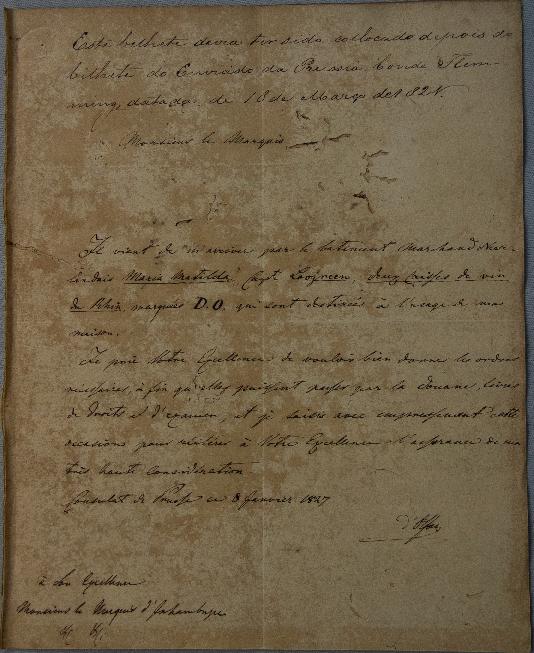 Este bilhete devia ter sido collocado depois do
bilhete do Enviado da Prussia Conde Flem-
ming, datado de 18 de Março de 182
Monsieur le Marquis
Il vient de m'arriver par le batiment marchand Neer-
landais Maria Matilda, Capt. deux caisses de vin
de Rhin, marqués D.O. qui sont destinées à l'usage de ma
maison.
Je prie Votre Excellence de vouloir bien donner les ordres
nécessaires, à fin qu'elles puissent passer par la douane, libres
de droits et d'examen, et je saisis avec empressement cette
occasion pour réitérer à Votre Excellence l'assurance de ma
très haute Considération
Consulat de Prusse ce 8 Janvier 1827
à Son Excellence
Monsieur le Marquis d'Inhambupe
&c &c.